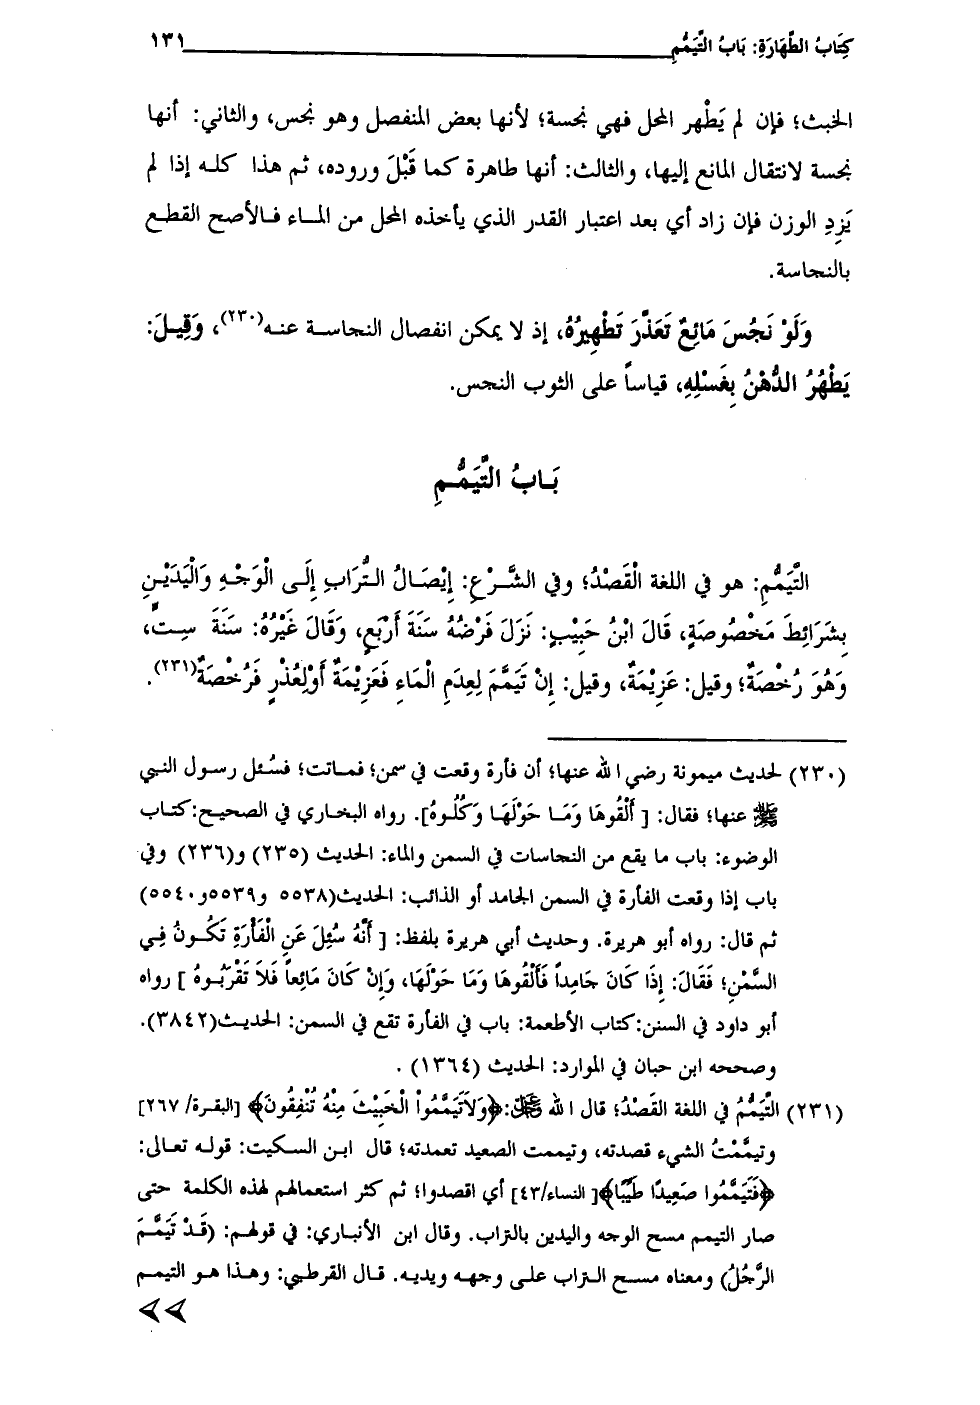 كِتَابُ الطَّهَارَةِ: بَابُ التَّيَمُّمِ ١٣١
الخبث؛ فإن لم يَطْهر المحل فهي نجسة؛ لأنها بعض المنفصل وهو نجس، والثاني: أنها
نجسة لانتقال المانع إليها، والثالث: أنها طاهرة كما قَبْلَ وروده، ثم هذا كله إذا لم
يَزِدِ الوزن فإن زاد أي بعد اعتبار القدر الذي يأخذه المحل من الماء فالأصح القطع
بالنجاسة.
وَلَوْ نَجُسَ مَائِعٌ تَعَذَّرَ تَطْهِيرُهُ، إذ لا يمكن انفصال النجاسة عنه(٢٣٠)، وَقِيلَ:
يَطْهُرُ الدُّهْنُ بِغَسْلِهِ، قياساً على الثوب النجس.
بَابُ التَّيَمُّمِ
التَّيَمُّمِ: هو في اللغة الْقَصْدُ؛ وفي الشَّرْعِ: إِيْصَالُ التُّرَابِ إِلَى الْوَجْهِ وَالْيَدَيْنِ
بِشَرَائِطَ مَخْصُوصَةٍ، قَالَ ابْنُ حَبِيْبٍ: نَزَلَ فَرْضُهُ سَنَةَ أَرْبَعٍ، وَقَالَ غَيْرُهُ: سَنَةَ سِتٍّ،
وَهُوَ رُخْصَةٌ؛ وقيل: عَزِيْمَةٌ، وقيل: إِنْ تَيَمَّمَ لِعِدَمِ الْمَاءِ فَعَزِيْمَةٌ أَوْلِعُذْرٍ فَرُخْصَةٌ(٢٣١).
(٢٣٠) لحديث ميمونة رضي الله عنها؛ أن فأرة وقعت في سمن؛ فماتت؛ فسُئل رسول النبي
ﷺ عنها؛ فقال: [ أَلْقُوهَا وَمَا حَوْلَهَا وَكُلُوهُ]. رواه البخاري في الصحيح:كتاب
الوضوء: باب ما يقع من النجاسات في السمن والماء: الحديث (٢٣٥) و(٢٣٦) وفي
باب إذا وقعت الفأرة في السمن الجامد أو الذائب: الحديث(٥٥٣٨ و٥٥٣٩و٥٥٤٠)
ثم قال: رواه أبو هريرة. وحديث أبي هريرة بلفظ: [ أَنَّهُ سُئِلَ عَنِ الْفَأْرَةِ تَكُونُ فِي
السَّمْنِ؛ فَقَالَ: إِذَا كَانَ جَامِداً فَأَلْقُوهَا وَمَا حَوْلَهَا، وَإِنْ كَانَ مَائِعاً فَلاَ تَقْرَبُوهُ ] رواه
أبو داود في السنن:كتاب الأطعمة: باب في الفأرة تقع في السمن: الحديث(٣٨٤٢).
وصححه ابن حبان في الموارد: الحديث (١٣٦٤) .
(٢٣١) التَّيَمُّمُ في اللغة القَصْدُ؛ قال الله ﷻ:﴿وَلاَتَيَمَّمُواْ الْخَبِيْثَ مِنْهُ تُنْفِقُونَ﴾ [البقرة/ ٢٦٧]
وتيمَّمْتُ الشيء قصدته، وتيممت الصعيد تعمدته؛ قال ابن السكيت: قوله تعالى:
﴿فَتَيَمَّمُوا صَعِيدًا طَيِّبًا﴾[ النساء/٤٣] أي اقصدوا؛ ثم كثر استعمالهم لهذه الكلمة حتى
صار التيمم مسح الوجه واليدين بالتراب. وقال ابن الأنباري: في قولهم: (قَدْ تَيَمَّمَ
الرَّجُلُ) ومعناه مسح التراب على وجهه ويديه. قال القرطبي: وهذا هو التيمم